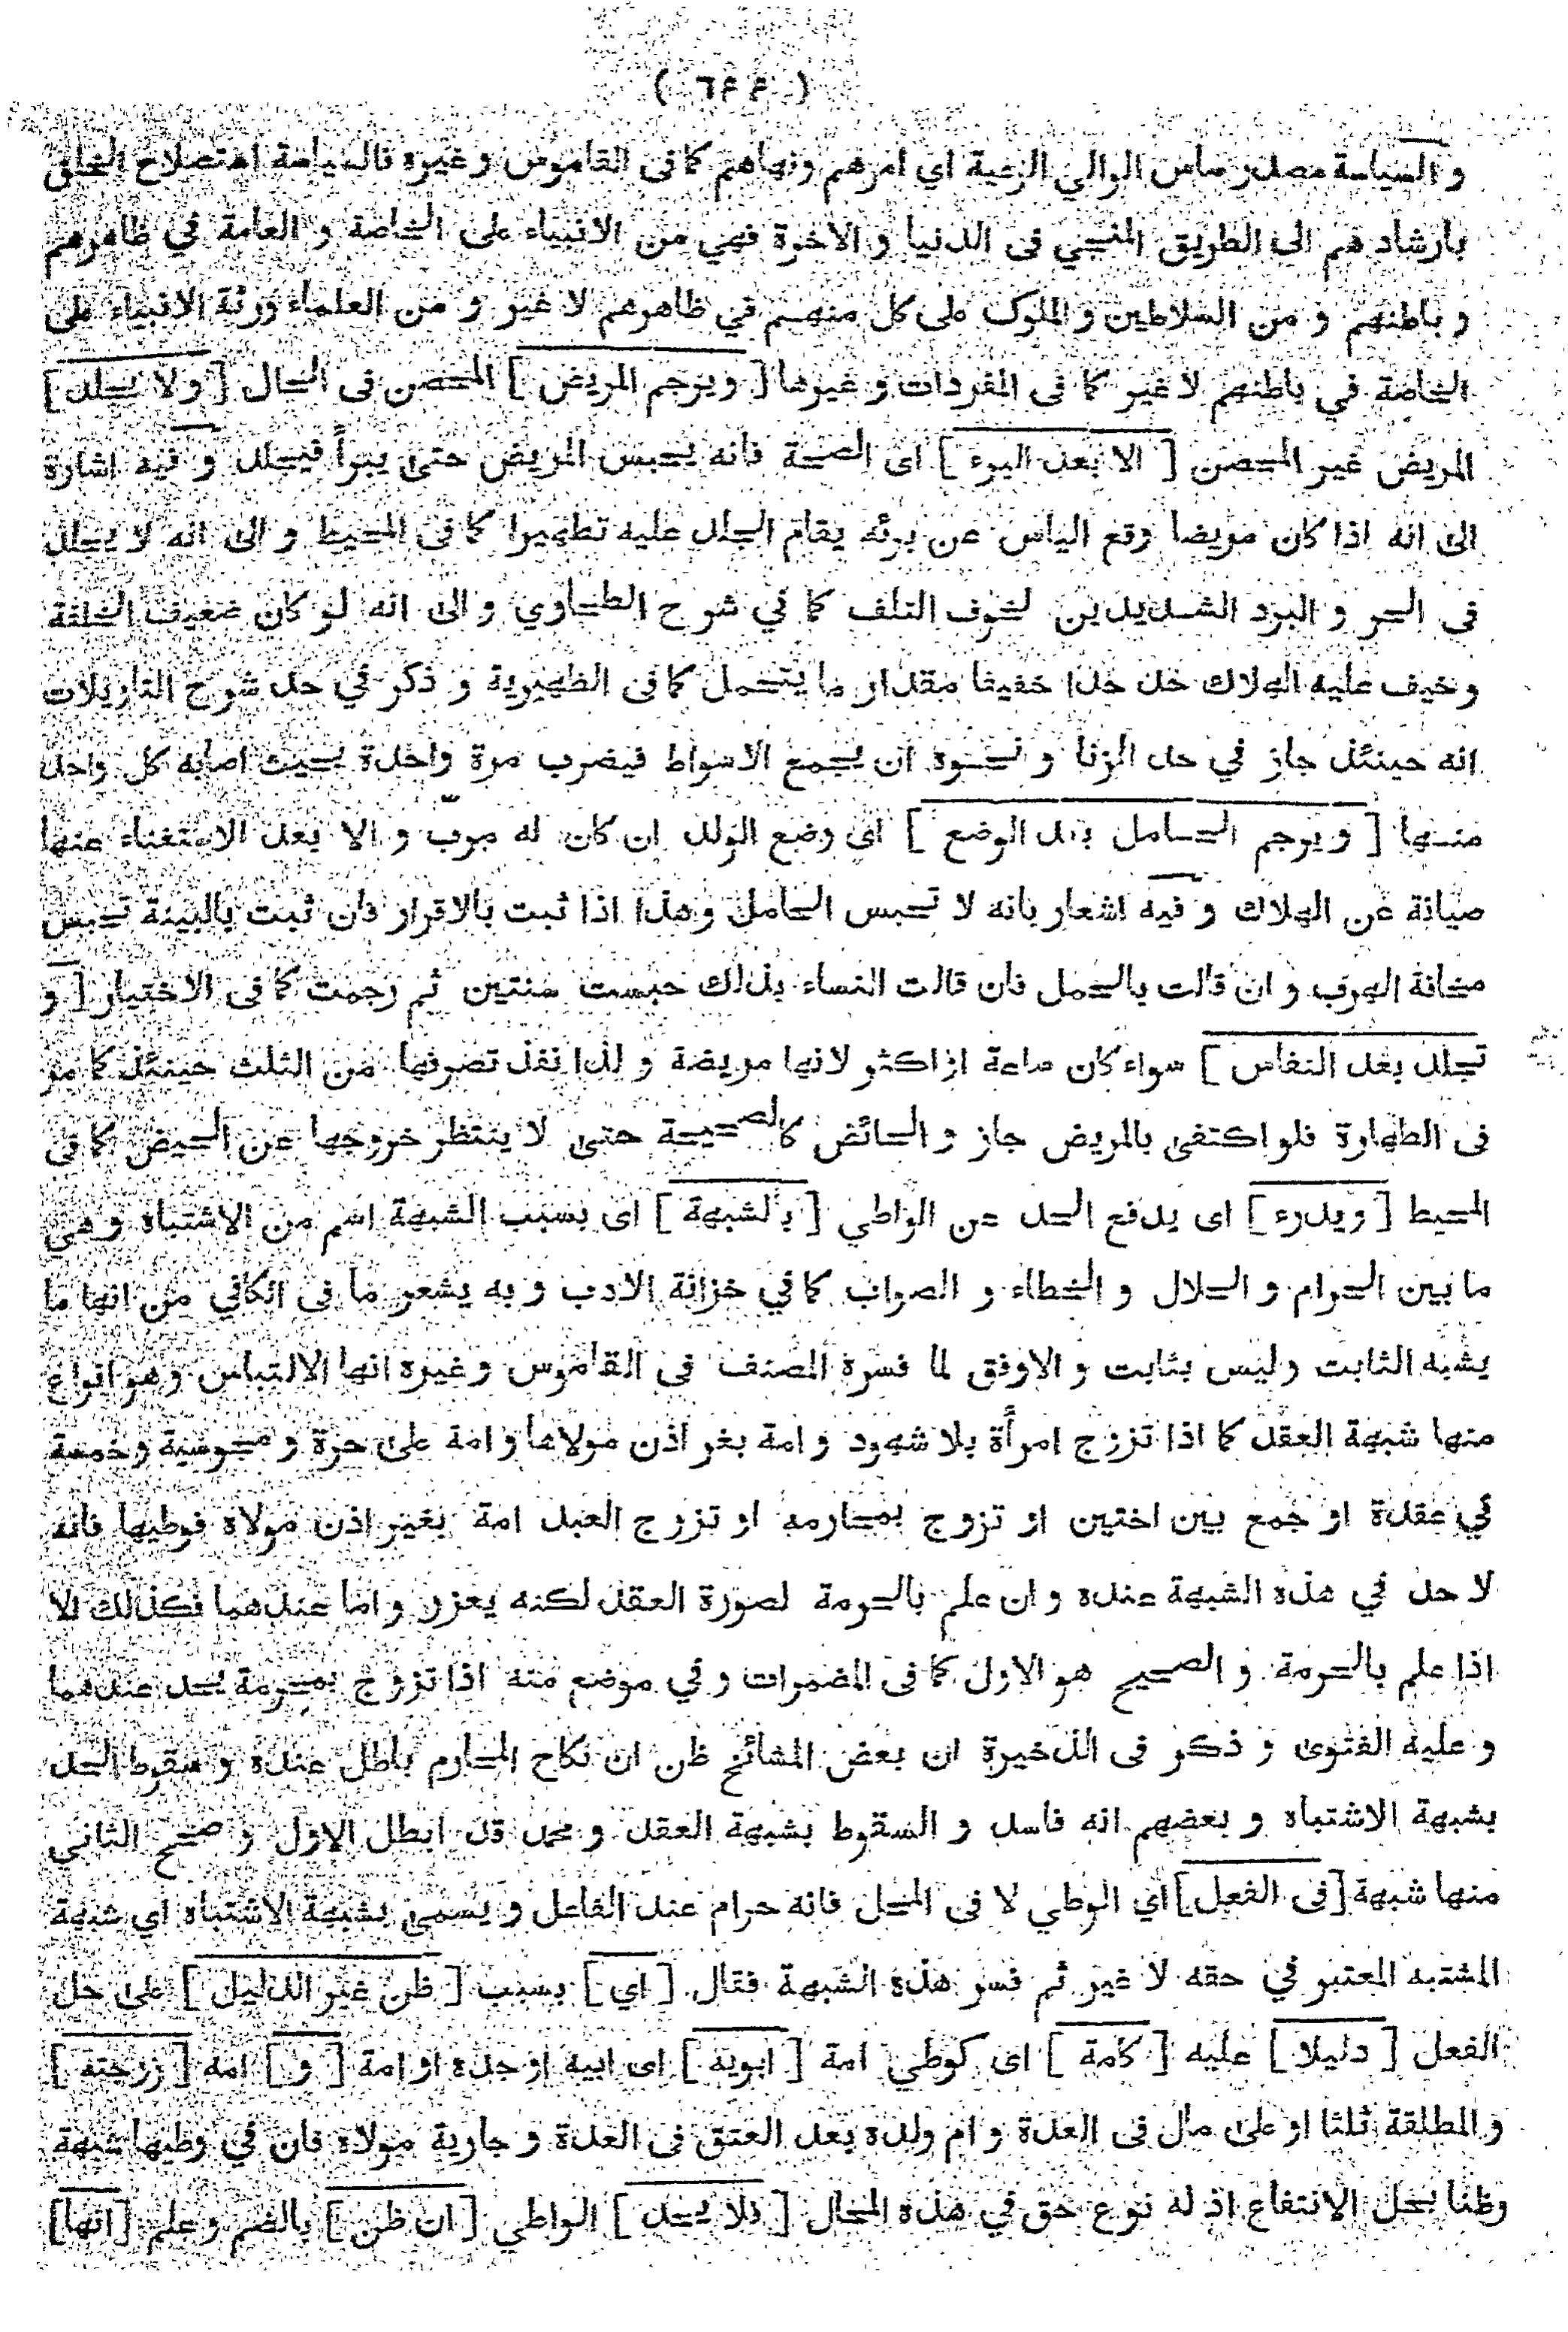 ( ٦٤٤ )
و السياسة مصدر ساس الوالي الرعية اي امرهم ونهاهم كما فى القاموس و غيره فالسياسة استصلاح الخلق
بارشادهم الى الطريق المنجي فى الدنيا و الاخرة فهي من الانبياء على الخاصة و العامة في ظاهرهم
و باطنهم و من السلاطين و الملوك على كل منهم في ظاهرهم لا غير و من العلماء ورثة الانبياء على
الخاصة في باطنهم لا غير كما فى المفردات و غيرها [ ويرجم المريض ] المحصن فى الحال [ ولا يجلد ]
المريض غير المحصن [ الا بعد البرء ] اى الصحة فانه يحبس المريض حتى يبرأ فيجلد و فيه اشارة
الى انه اذا كان مريضا وقع الياس عن برئه يقام الجلد عليه تطهيرا كما فى المحيط و الى انه لا يجلد
فى الحر و البرد الشديدين لخوف التلف كما في شرح الطحاوي و الى انه لو كان ضعيف الخلقة
و خيف عليه الهلاك حد حدا خفيفا مقدار ما يتحمل كما فى الظهيرية و ذكر في حد شرح التاويلات
انه حينئذ جاز في حد الزنا و نحوه ان يجمع الاسواط فيضرب مرة واحدة بحيث اصابه كل واحد
منها [ ويرجم الحامل بعد الوضع ] اى وضع الولد ان كان له مربّ و الا بعد الاستغناء عنها
صيانة عن الهلاك و فيه اشعار بانه لا تحبس الحامل وهذا اذا ثبت بالاقرار فان ثبت بالبينة تحبس
مخافة الهرب و ان قالت بالحمل فان قالت النساء بذلك حبست سنتين ثم رجمت كما فى الاختيار [ و
تجلد بعد النفاس ] سواء كان ساعة او اكثر لانها مريضة و لذا نفذ تصرفها من الثلث حينئذ كما مر
فى الطهارة فلو اكتفى بالمريض جاز و الحائض كالصحيحة حتى لا ينتظر خروجها عن الحيض كما فى
المحيط [ ويدرء ] اى يدفع الحد عن الواطي [ بالشبهة ] اى بسبب الشبهة اسم من الاشتباه و هي
ما بين الحرام و الحلال و الخطاء و الصواب كما في خزانة الادب و به يشعر ما فى الكافي من انها ما
يشبه الثابت وليس بثابت و الاوفق لما فسره المصنف فى القاموس و غيره انها الالتباس و هو انواع
منها شبهة العقد كما اذا تزوج امرأة بلا شهود و امة بغر اذن مولاها و امة على حرة و مجوسية و خمسة
في عقدة او جمع بين اختين او تزوج بمحارمه او تزوج العبد امة بغير اذن مولاه فوطيها فانه
لا حد في هذه الشبهة عنده و ان علم بالحرمة لصورة العقد لكنه يعزر و اما عندهما فكذلك الا
اذا علم بالحرمة و الصحيح هو الاول كما فى المضمرات و في موضع منه اذا تزوج بمحرمة يحد عندهما
و عليه الفتوى و ذكر فى الذخيرة ان بعض المشائخ ظن ان نكاح المحارم باطل عنده و سقوط الحد
بشبهة الاشتباه و بعضهم انه فاسد و السقوط بشبهة العقد و محمد قد ابطل الاول و صحح الثاني
منها شبهة [ فى الفعل ] اي الوطي لا فى المحل فانه حرام عند الفاعل و يسمى بشبهة الاشتباه اي شبهة
المشتبه المعتبر في حقه لا غير ثم فسر هذه الشبهة فقال [ اي ] بسبب [ ظن غير الدليل ] على حل
الفعل [ دليلا ] عليه [ كامة ] اى كوطي امة [ ابويه ] اى ابيه او جده او امة [ و ] امه [ زوجته ]
و المطلقة ثلثا او على مال فى العدة و ام ولده بعد العتق فى العدة و جارية مولاه فان في وطيها شبهة
وظنا بحل الانتفاع اذ له نوع حق في هذه المحال [ فلا يحد ] الواطي [ ان ظن ] بالضم و علم [ انها ]